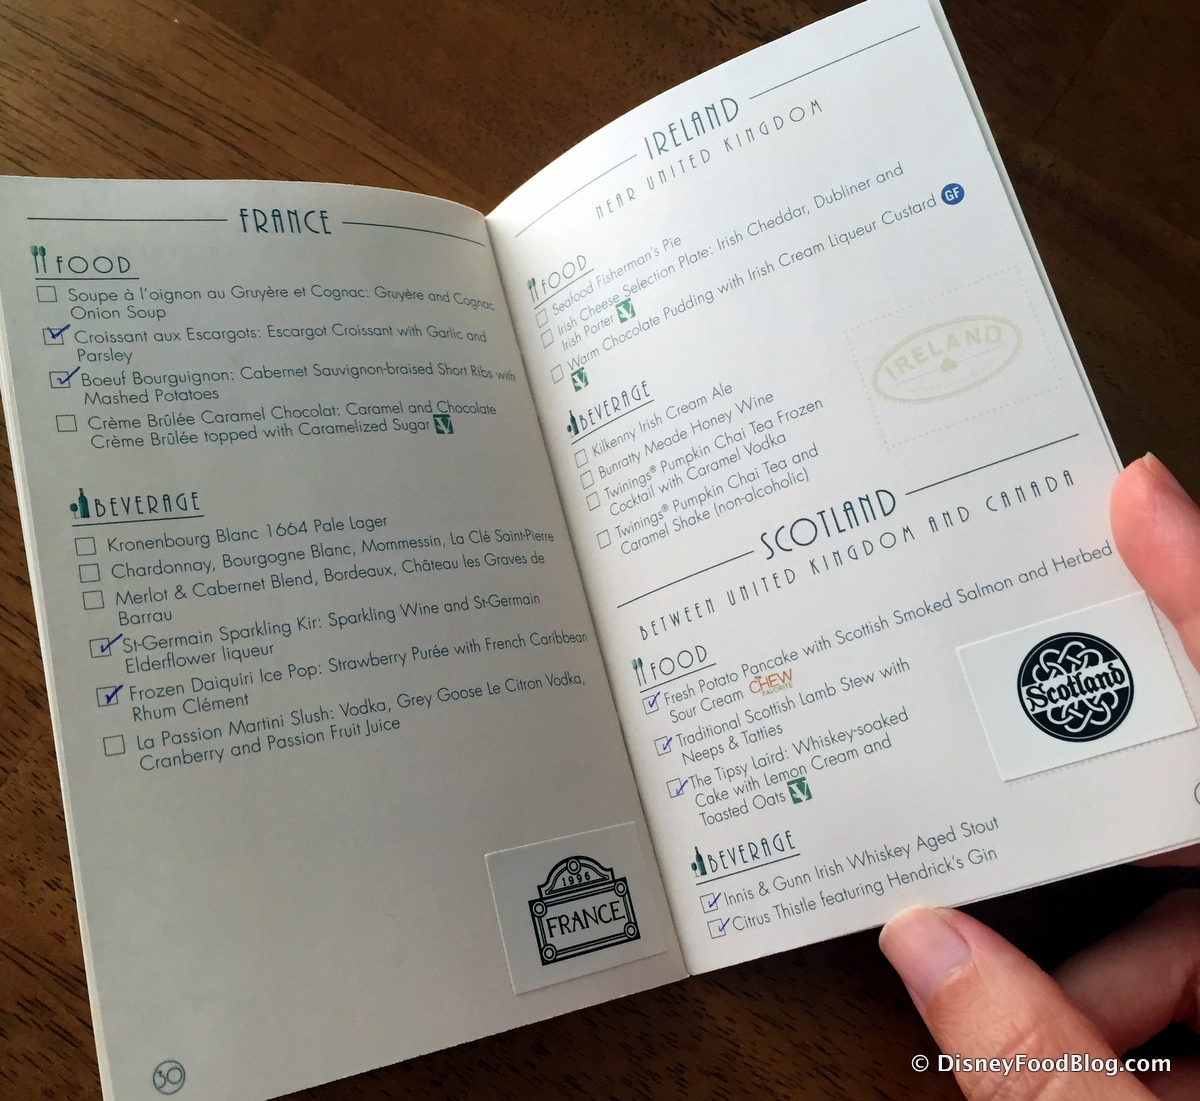 FRANCE
FOOD
Soupe à l'oignon au Gruyère et Cognac: Gruyère and Cognac
Onion Soup
Croissant aux Escargots: Escargot Croissant with Garlic and
Parsley
Boeuf Bourguignon: Cabernet Sauvignon-braised Short Ribs with
Mashed Potatoes
Crème Brûlée Caramel Chocolat: Caramel and Chocolate
Crème Brûlée topped with Caramelized Sugar
BEVERAGE
Kronenbourg Blanc 1664 Pale Lager
Chardonnay, Bourgogne Blanc, Mommessin, La Clé Saint-Pierre
Merlot & Cabernet Blend, Bordeaux, Château les Graves de
Barrau
St-Germain Sparkling Kir: Sparkling Wine and St-Germain
Elderflower liqueur
Frozen Daiquiri Ice Pop: Strawberry Purée with French Caribbean
Rhum Clément
La Passion Martini Slush: Vodka, Grey Goose Le Citron Vodka,
Cranberry and Passion Fruit Juice
1996
FRANCE
30
IRELAND
NEAR UNITED KINGDOM
FOOD
Seafood Fisherman's Pie
Irish Cheese Selection Plate: Irish Cheddar, Dubliner and
Irish Porter
Warm Chocolate Pudding with Irish Cream Liqueur Custard GF
BEVERAGE
Kilkenny Irish Cream Ale
Bunratty Meade Honey Wine
Twinings® Pumpkin Chai Tea Frozen
Cocktail with Caramel Vodka
Twinings® Pumpkin Chai Tea and
Caramel Shake (non-alcoholic)
IRELAND
SCOTLAND
BETWEEN UNITED KINGDOM AND CANADA
FOOD
Fresh Potato Pancake with Scottish Smoked Salmon and Herbed
Sour Cream THE CHEW FAVORITE
Traditional Scottish Lamb Stew with
Neeps & Tatties
The Tipsy Laird: Whiskey-soaked
Cake with Lemon Cream and
Toasted Oats
BEVERAGE
Innis & Gunn Irish Whiskey Aged Stout
Citrus Thistle featuring Hendrick's Gin
Scotland
© DisneyFoodBlog.com